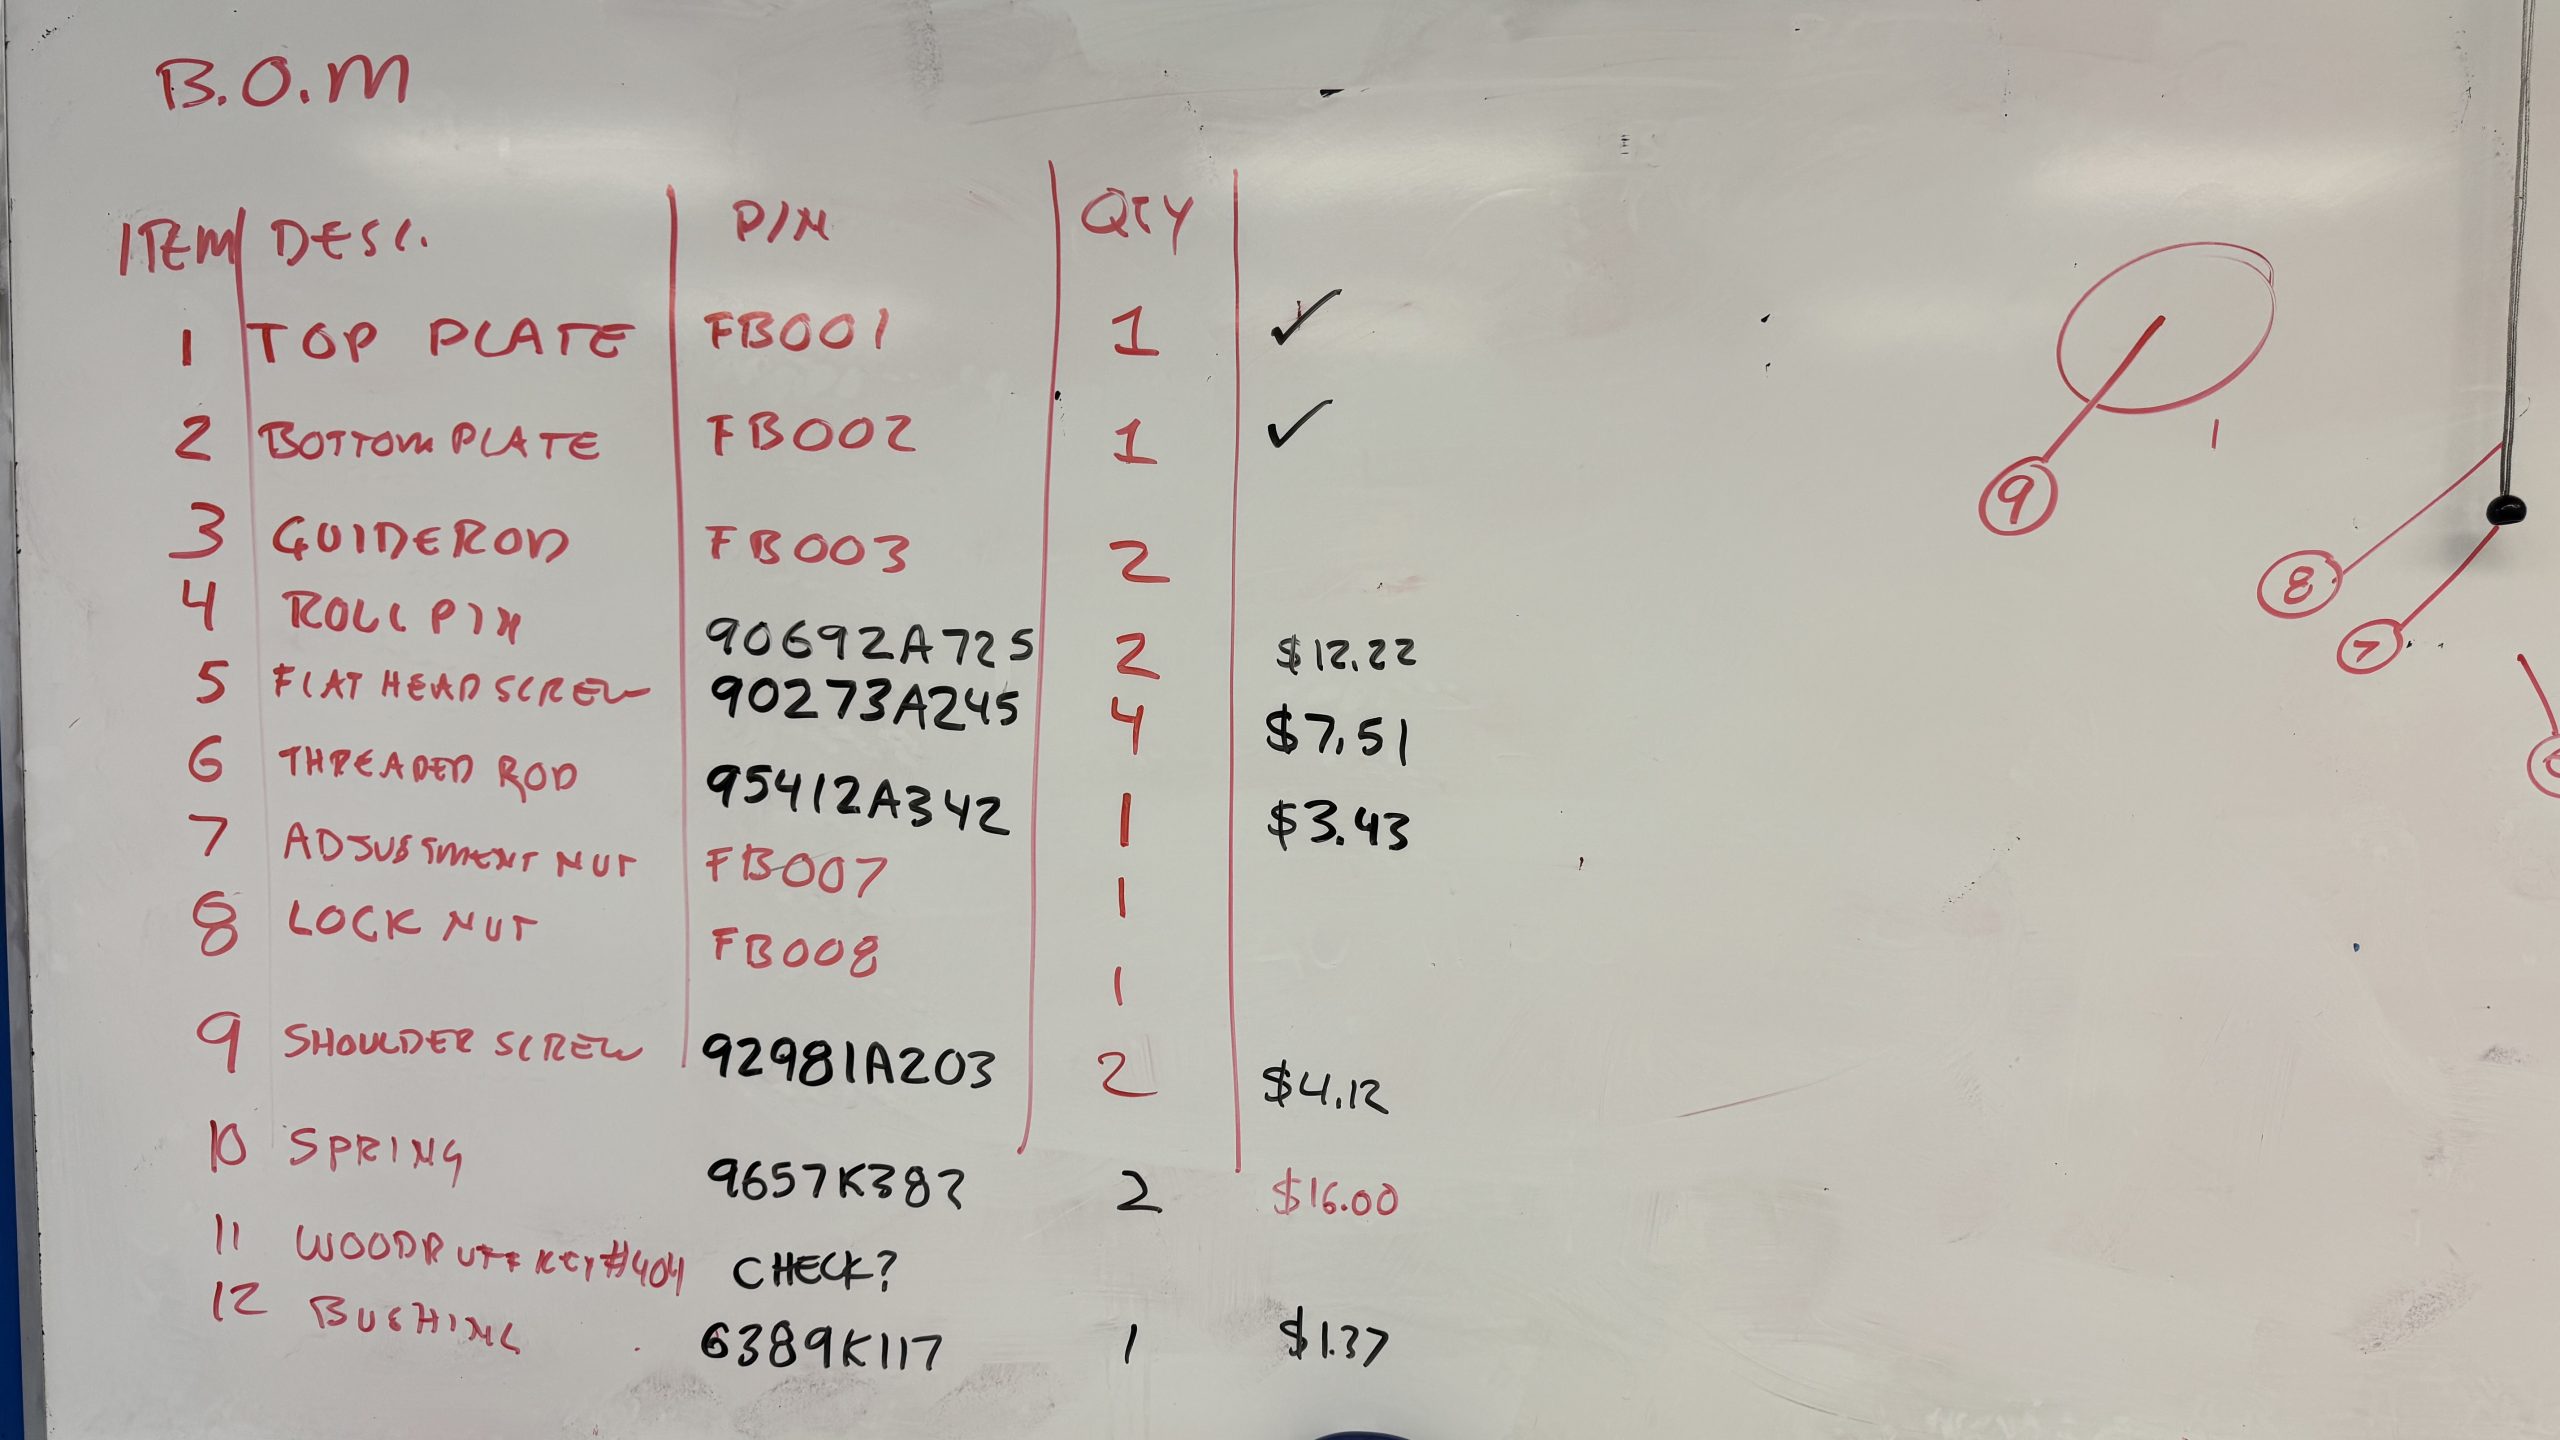 B.O.M
ITEM DESC. P/N QTY
1 TOP PLATE FB001 1 ✓
2 BOTTOM PLATE FB002 1 ✓
3 GUIDE ROD FB003 2
4 ROLL PIN 90692A725 2 $12.22
5 FLAT HEAD SCREW 90273A245 4 $7.51
6 THREADED ROD 95412A342 1 $3.43
7 ADJUSTMENT NUT FB007 1
8 LOCK NUT FB008 1
9 SHOULDER SCREW 92981A203 2 $4.12
10 SPRING 9657K382 2 $16.00
11 WOODRUFF KEY #404 CHECK?
12 BUSHING 6389K117 1 $1.37
1
9
8
7